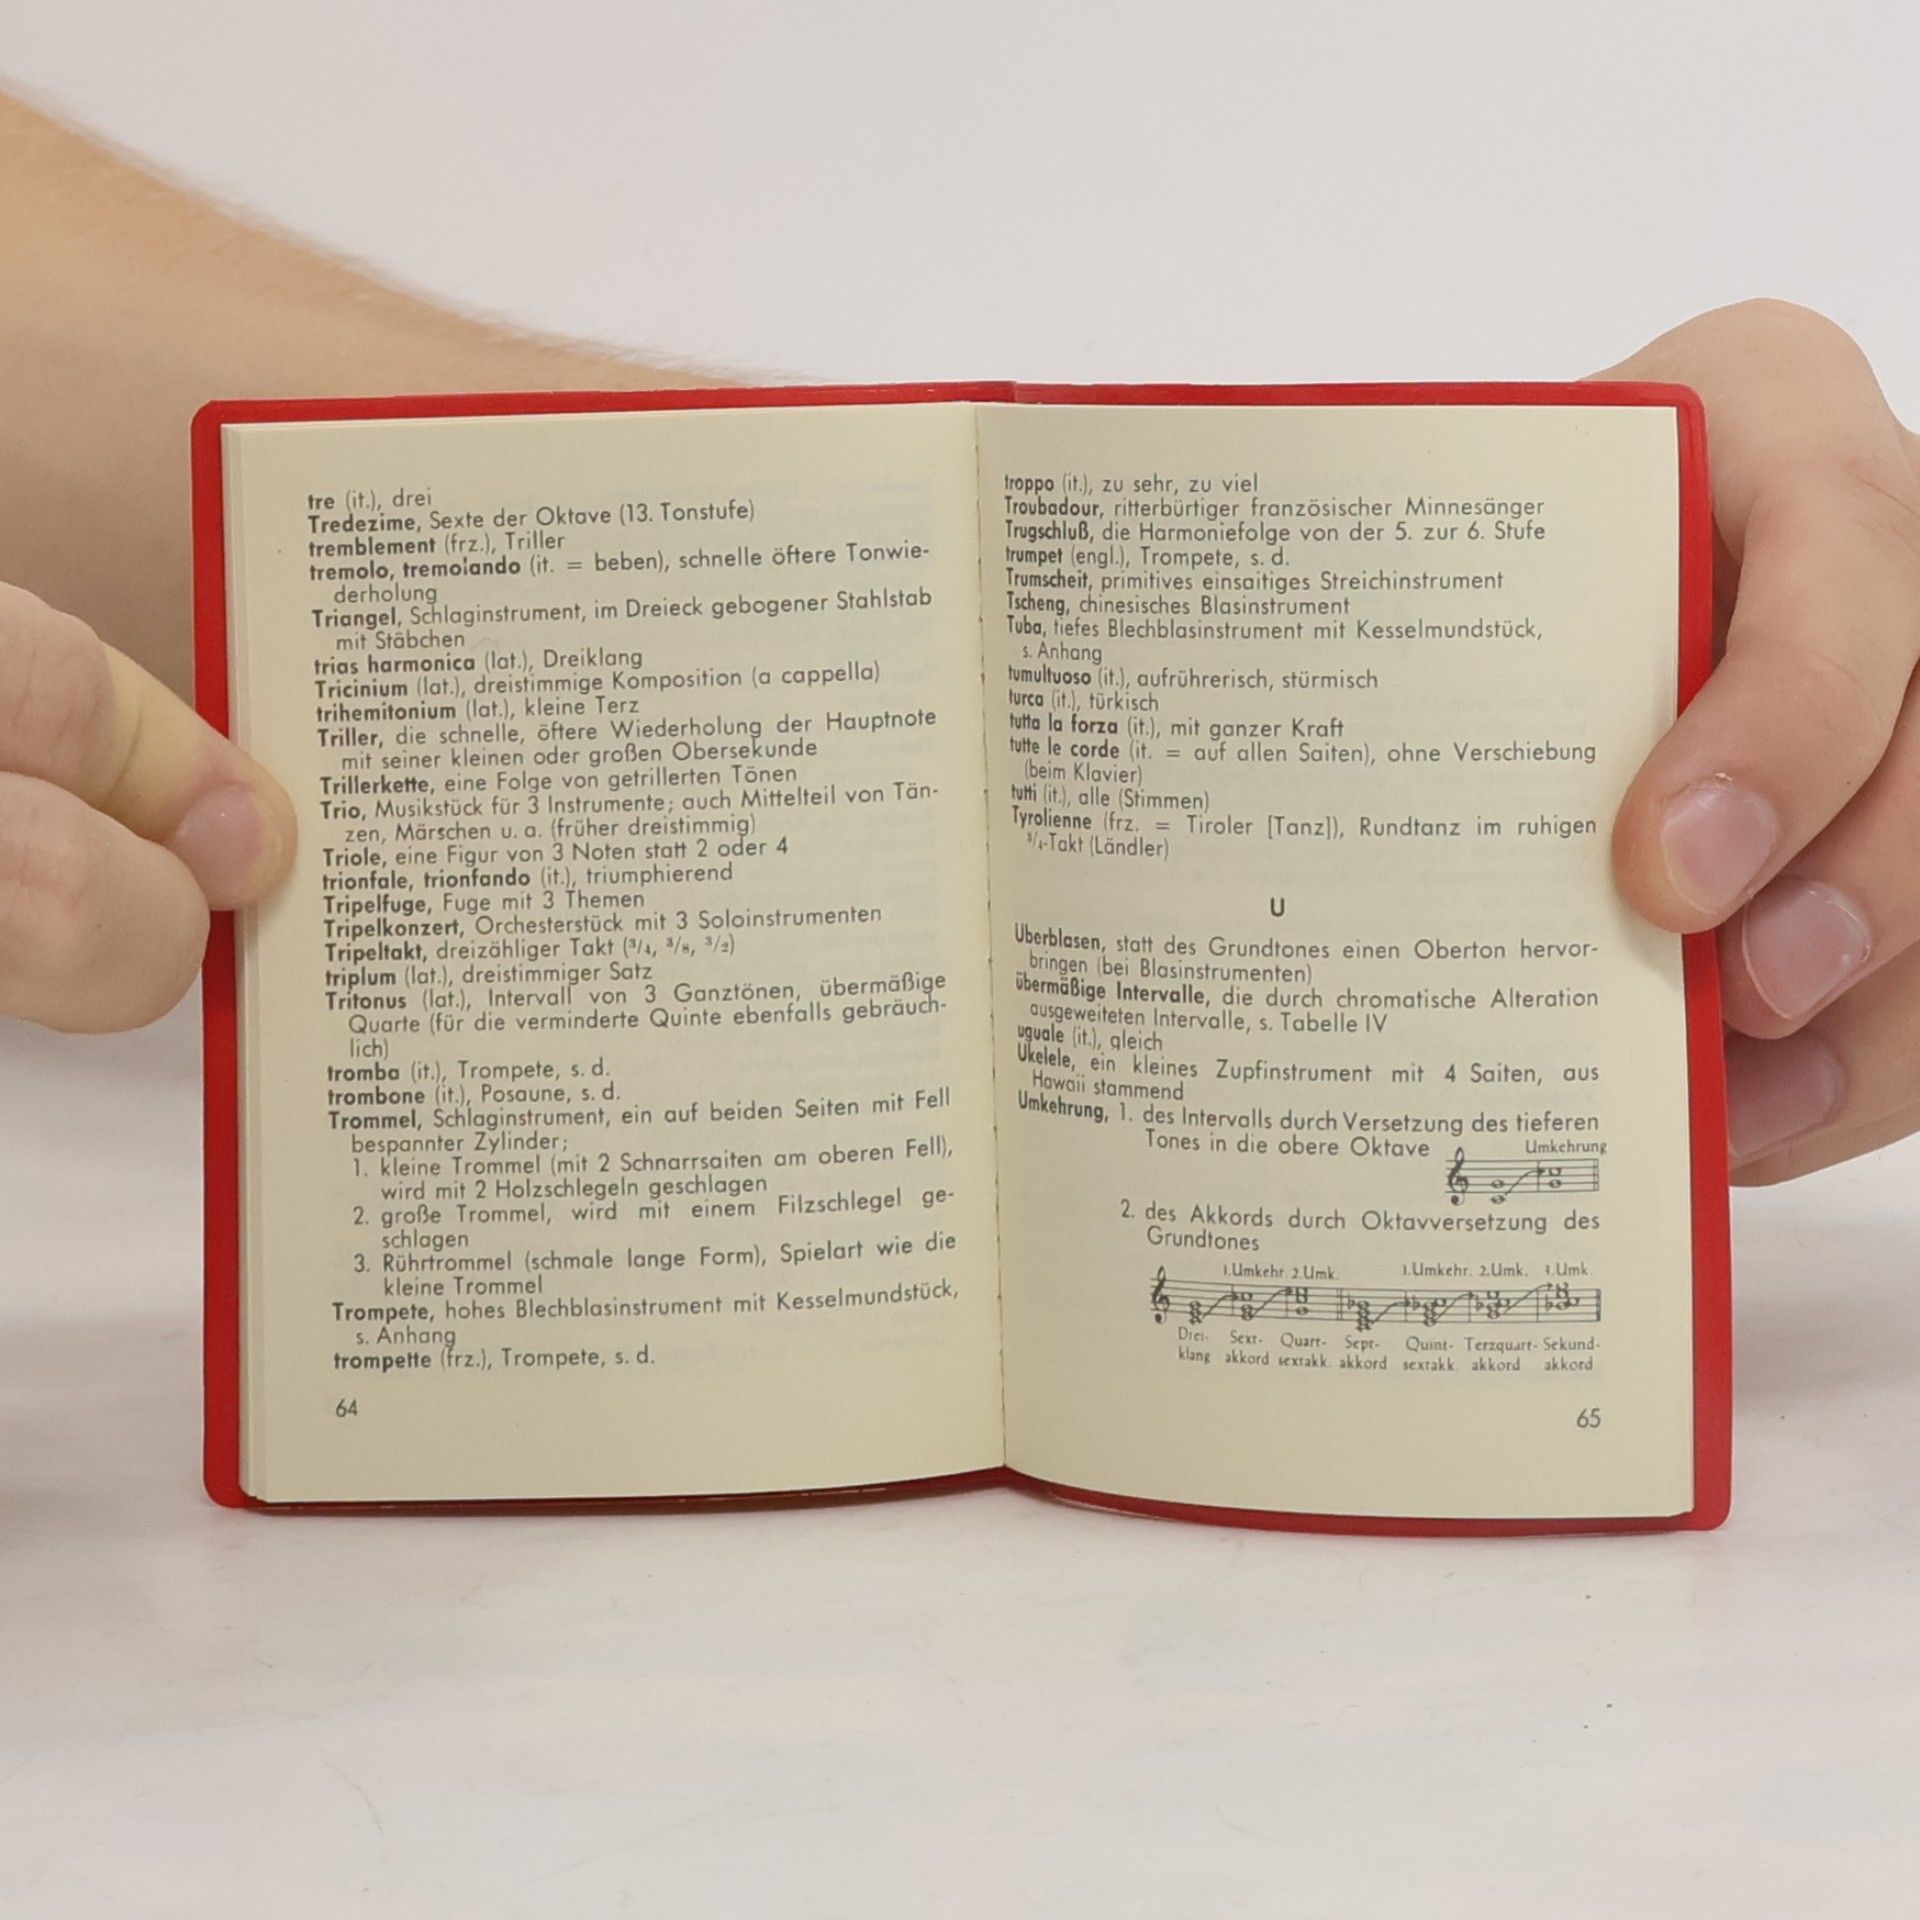 tre (it.), drei
Tredezime, Sexte der Oktave (13. Tonstufe)
tremblement (frz.), Triller
tremolo, tremolando (it. = beben), schnelle öftere Tonwie-
derholung
Triangel, Schlaginstrument, im Dreieck gebogener Stahlstab
mit Stäbchen
trias harmonica (lat.), Dreiklang
Tricinium (lat.), dreistimmige Komposition (a cappella)
trihemitonium (lat.), kleine Terz
Triller, die schnelle, öftere Wiederholung der Hauptnote
mit seiner kleinen oder großen Obersekunde
Trillerkette, eine Folge von getrillerten Tönen
Trio, Musikstück für 3 Instrumente; auch Mittelteil von Tän-
zen, Märschen u. a. (früher dreistimmig)
Triole, eine Figur von 3 Noten statt 2 oder 4
trionfale, trionfando (it.), triumphierend
Tripelfuge, Fuge mit 3 Themen
Tripelkonzert, Orchesterstück mit 3 Soloinstrumenten
Tripeltakt, dreizähliger Takt (3/4, 3/8, 3/2)
triplum (lat.), dreistimmiger Satz
Tritonus (lat.), Intervall von 3 Ganztönen, übermäßige
Quarte (für die verminderte Quinte ebenfalls gebräuch-
lich)
tromba (it.), Trompete, s. d.
trombone (it.), Posaune, s. d.
Trommel, Schlaginstrument, ein auf beiden Seiten mit Fell
bespannter Zylinder;
1. kleine Trommel (mit 2 Schnarrsaiten am oberen Fell),
wird mit 2 Holzschlegeln geschlagen
2. große Trommel, wird mit einem Filzschlegel ge-
schlagen
3. Rührtrommel (schmale lange Form), Spielart wie die
kleine Trommel
Trompete, hohes Blechblasinstrument mit Kesselmundstück,
s. Anhang
trompette (frz.), Trompete, s. d.
64
troppo (it.), zu sehr, zu viel
Troubadour, ritterbürtiger französischer Minnesänger
Trugschluß, die Harmoniefolge von der 5. zur 6. Stufe
trumpet (engl.), Trompete, s. d.
Trumscheit, primitives einsaitiges Streichinstrument
Tscheng, chinesisches Blasinstrument
Tuba, tiefes Blechblasinstrument mit Kesselmundstück,
s. Anhang
tumultuoso (it.), aufrührerisch, stürmisch
turca (it.), türkisch
tutta la forza (it.), mit ganzer Kraft
tutte le corde (it. = auf allen Saiten), ohne Verschiebung
(beim Klavier)
tutti (it.), alle (Stimmen)
Tyrolienne (frz. = Tiroler [Tanz]), Rundtanz im ruhigen
3/4-Takt (Ländler)
U
Überblasen, statt des Grundtones einen Oberton hervor-
bringen (bei Blasinstrumenten)
übermäßige Intervalle, die durch chromatische Alteration
ausgeweiteten Intervalle, s. Tabelle IV
uguale (it.), gleich
Ukelele, ein kleines Zupfinstrument mit 4 Saiten, aus
Hawaii stammend
Umkehrung, 1. des Intervalls durch Versetzung des tieferen
Tones in die obere Oktave
Umkehrung
2. des Akkords durch Oktavversetzung des
Grundtones
1.Umkehr. 2.Umk. 1.Umkehr. 2.Umk. 3.Umk.
Drei- Sext- Quart- Sept- Quint- Terzquart- Sekund-
klang akkord sextakk. akkord sextakk. akkord akkord
65